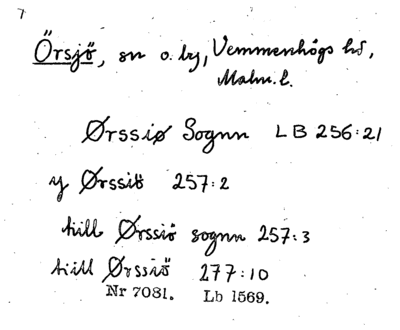 Örsjö, sn o. by, Vemmenhögs hd,
Malm. l.
Ørssiø Sognn LB 256:21
y Ørssiö 257:2
till Ørssiö sognn 257:3
till Ørssiö 277:10
Nr 7081. Lb 1569.